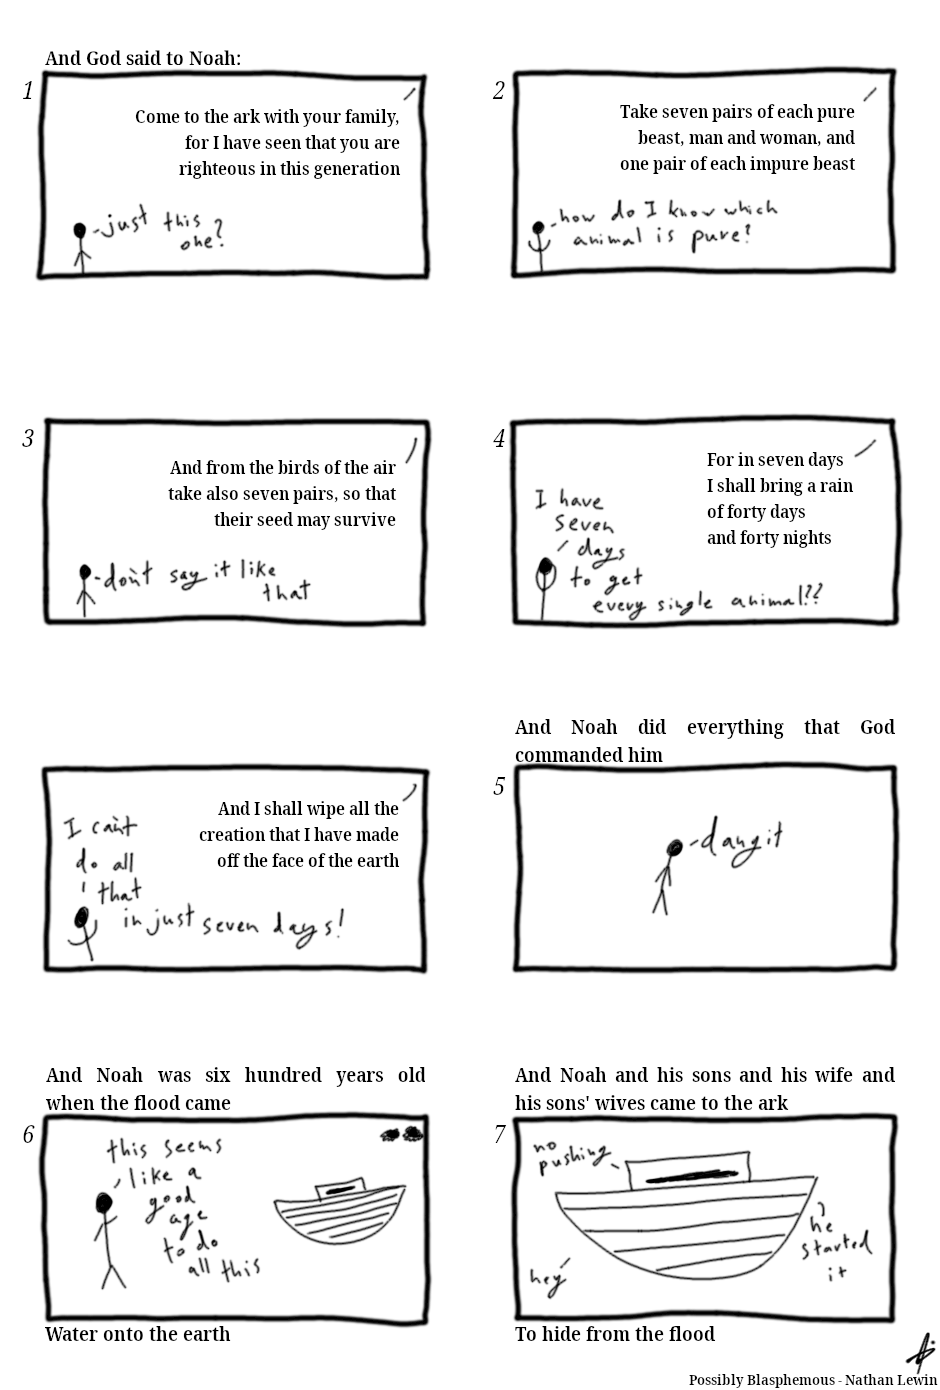 And God said to Noah:
1
Come to the ark with your family,
for I have seen that you are
righteous in this generation
just this
one?
2
Take seven pairs of each pure
beast, man and woman, and
one pair of each impure beast
how do I know which
animal is pure?
3
And from the birds of the air
take also seven pairs, so that
their seed may survive
don't say it like
that
4
For in seven days
I shall bring a rain
of forty days
and forty nights
I have
seven
days
to get
every single animal!??
And I shall wipe all the
creation that I have made
off the face of the earth
I can't
do all
that
in just seven days!
And Noah did everything that God
commanded him
5
dangit
And Noah was six hundred years old
when the flood came
6
this seems
like a
good
age
to do
all this
Water onto the earth
And Noah and his sons and his wife and
his sons' wives came to the ark
7
no
pushing
he
started
it
hey
To hide from the flood
Possibly Blasphemous - Nathan Lewin